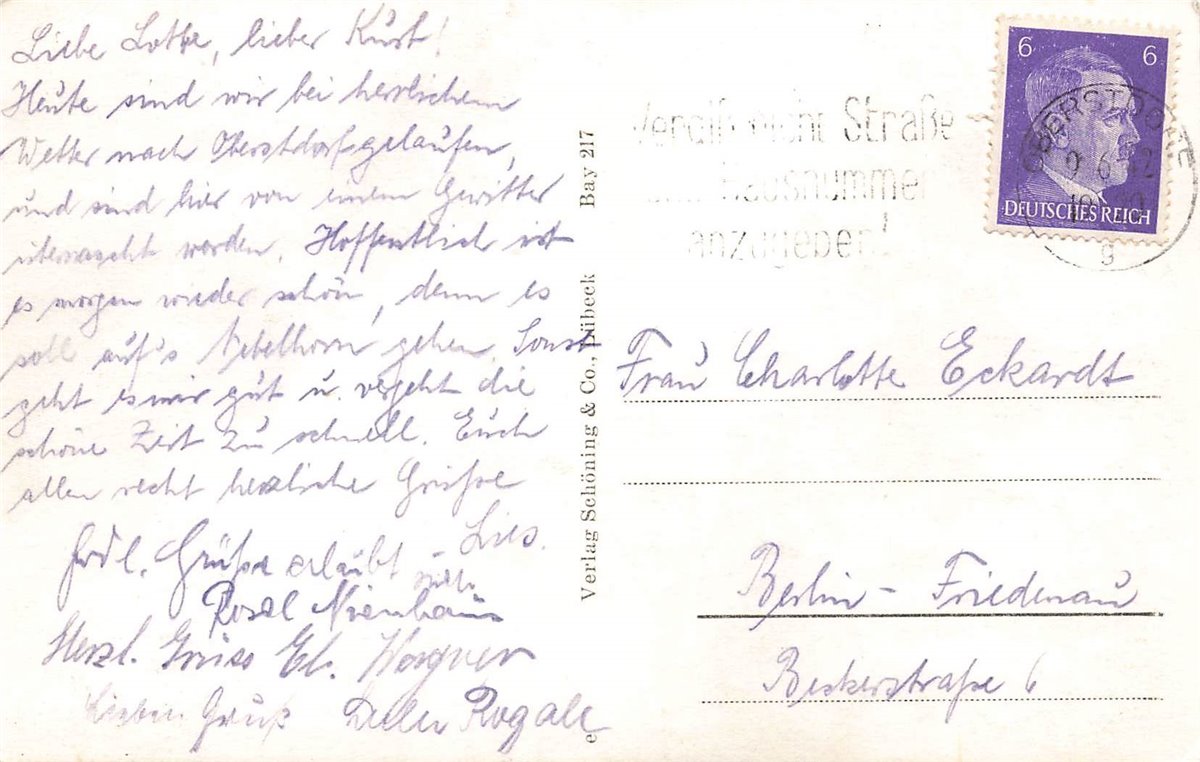 Liebe Lotte, lieber Kurt!
Heute sind wir bei herrlichem
Wetter nach Oberstdorf gelaufen,
und sind hier von einem Gewitter
überrascht worden. Hoffentlich ist
es morgen wieder schön, denn es
soll auf's Nebelhorn gehen. Sonst
geht es mir gut u. vergeht die
schöne Zeit zu schnell. Euch
allen recht herzliche Grüße
Lies.
Grüße erlaubt sich
Rosel Nienhaus
Herzl. Gruss El. Wagner
Lieben Gruß Rogall
Verlag Schöning & Co., Lübeck Bay 217
nicht Straße
Hausnummer
anzugeben!
6 6
DEUTSCHES REICH
OBERSTDORF
6.42
g
Frau Charlotte Eckardt
Berlin - Friedenau
Beckerstraße 6